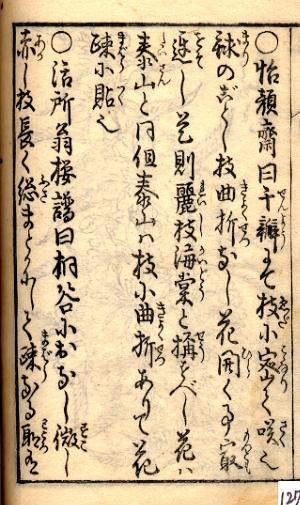 ○怡顔齋曰千瓣にて枝小密く咲也
毬のごとし枝曲折なし花開く事最
遅し是則麗枝海棠と稱すべし花ハ
泰山と同但泰山ハ枝小曲折ありて花
疎小貼也
○活所翁桜譜曰桐谷小おなし微し
赤し枝長く総まとふして疎なる取也
127